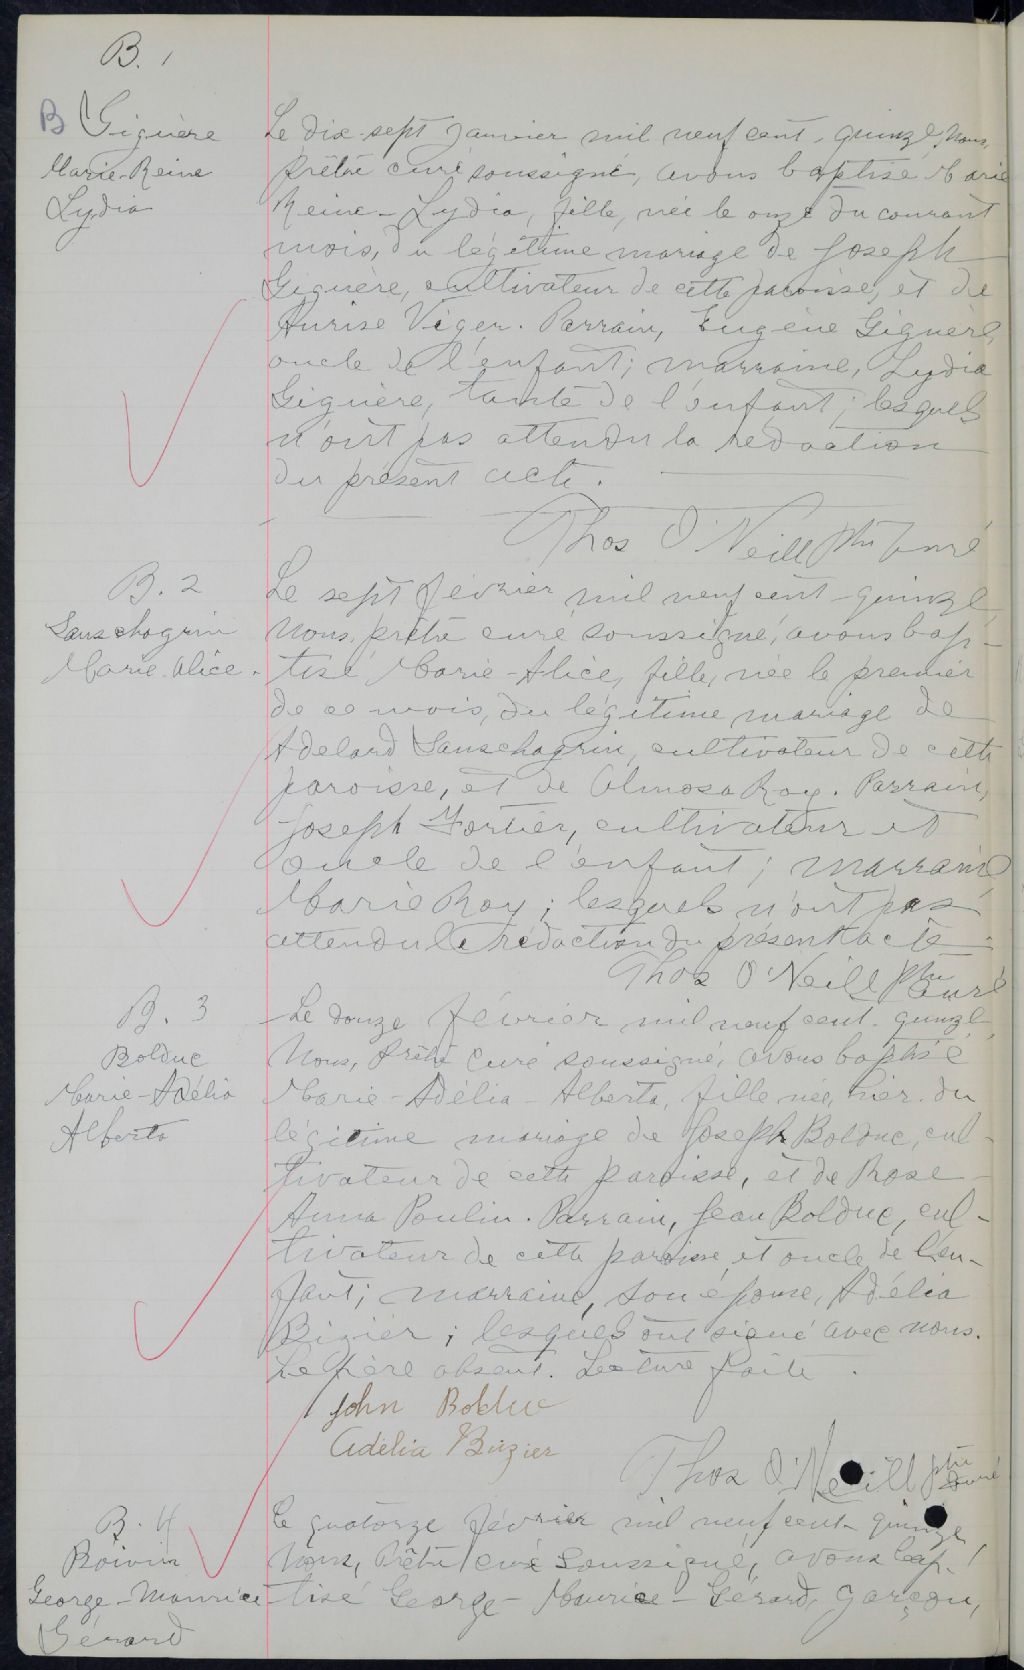 B. 1
B Giguère
Marie-Reine
Lydia
Le dix-sept janvier mil neuf cent-quinze, Nous,
prêtre curé soussigné, avons baptisé Marie
Reine-Lydia, fille, née le onze du courant
mois, du légitime mariage de Joseph
Giguère, cultivateur de cette paroisse, et de
Aurise Viger. Parrain, Eugène Giguère,
oncle de l'enfant; marraine, Lydia
Giguère, tante de l'enfant; lesquels
n'ont pas attendu la rédaction
du présent acte.
Thos O'Neill ptre curé
B. 2
Sanschagrin
Marie Alice.
Le sept février mil neuf cent-quinze,
Nous, prêtre curé soussigné, avons bap-
tisé Marie-Alice, fille, née le premier
de ce mois, du légitime mariage de
Adelard Sanschagrin, cultivateur de cette
paroisse, et de Almosa Roy. Parrain,
Joseph Fortier, cultivateur et
oncle de l'enfant; marraine
Marie Roy; lesquels n'ont pas
attendu la rédaction du présent acte.
Thos O'Neill ptre curé
B. 3
Bolduc
Marie-Adélia
Alberta
Le douze février mil neuf cent-quinze,
Nous, prêtre curé soussigné, avons baptisé
Marie-Adélia-Alberta, fille née, hier du
légitime mariage de Joseph Bolduc, cul-
tivateur de cette paroisse, et de Rose-
Anna Poulin. Parrain, Jean Bolduc, cul-
tivateur de cette paroisse et oncle de l'en-
fant; marraine, son épouse, Adélia
Bizier; lesquels ont signé avec nous.
Le père absent. Lecture faite.
John Bolduc
Adélia Bizier
Thos O'Neill ptre curé
B. 4
Boivin
George-Maurice
Gérard
Le quatorze février mil neuf cent-quinze,
Nous, prêtre curé soussigné, avons bap-
tisé George-Maurice-Gérard, garçon,